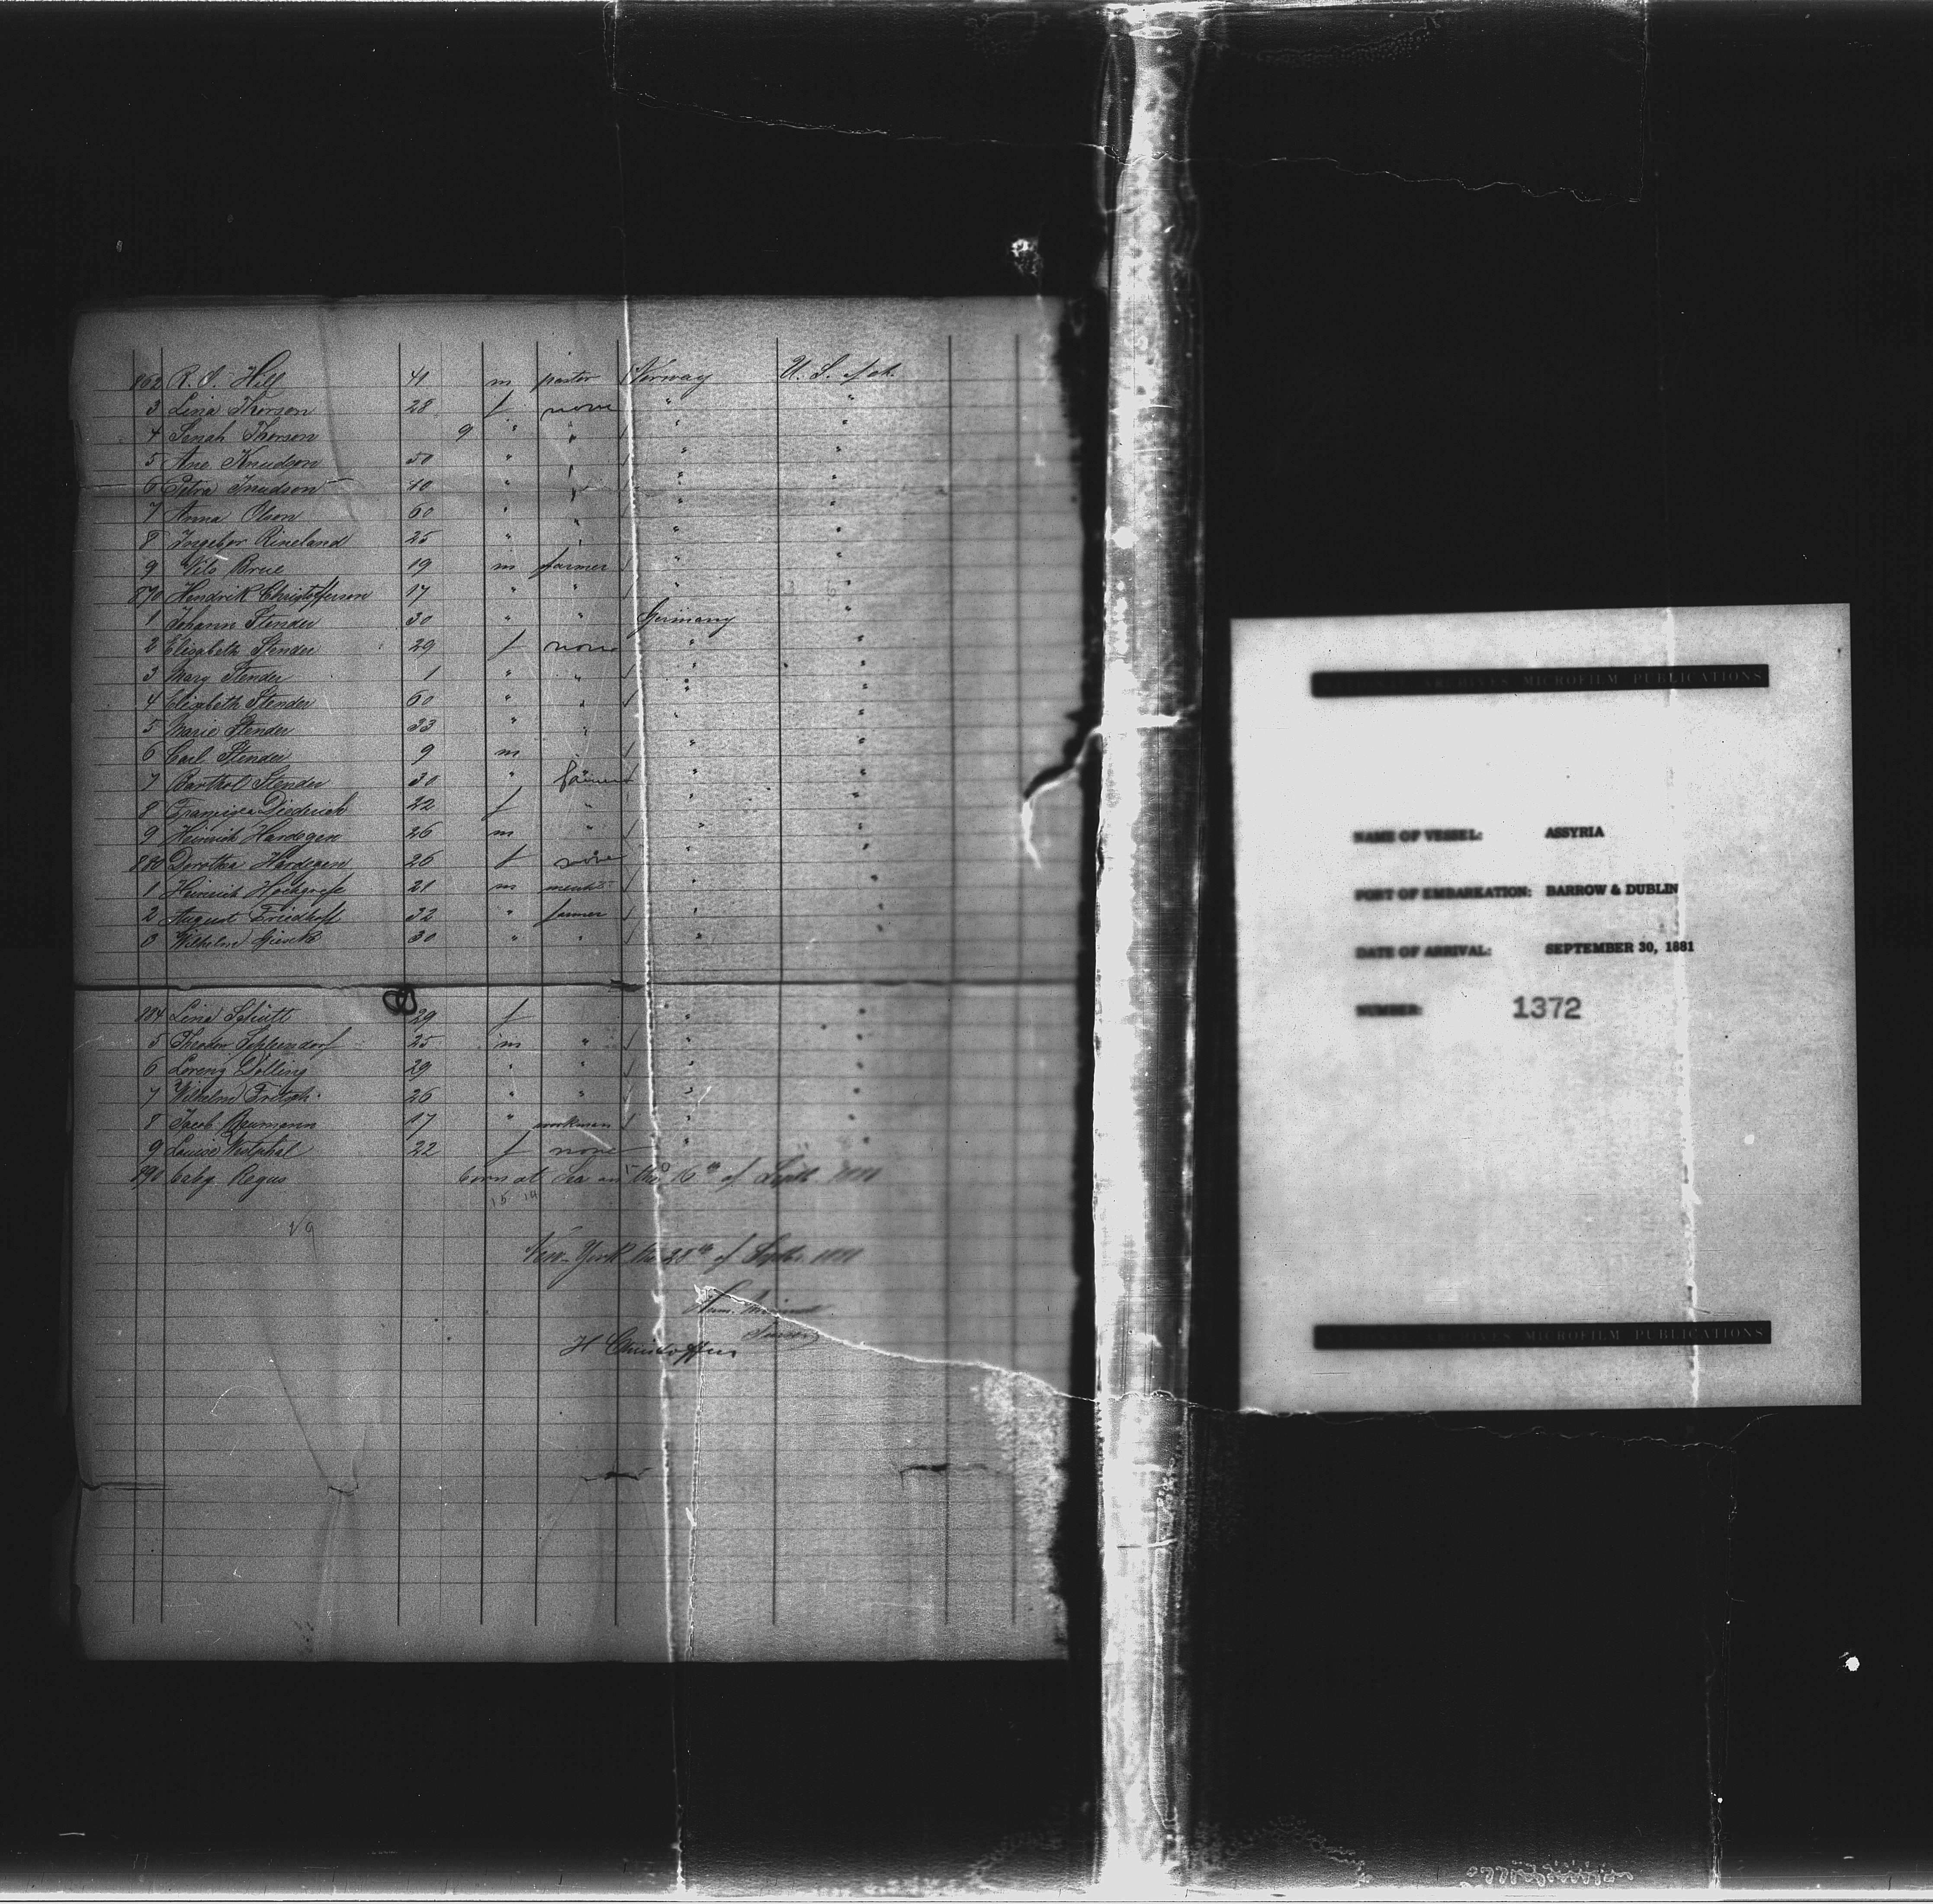 862 R. S. Hill 41 m pastor Norway U. S. of A.
3 Lina Thorson 28 f none " "
4 Senah Thorson 9 " " " "
5 Ane Knudson 50 " " " "
6 Petra Knudson 40 " " " "
7 Anna Olson 60 " " " "
8 Ingebor Rineland 25 " " " "
9 Nils Brue 19 m farmer " "
870 Hendrik Christofferson 17 " " " "
1 Johann Stender 30 " " Germany "
2 Elisabeth Stender 29 f none " "
3 Mary Stender 1 " " " "
4 Elisabeth Stender 60 " " " "
5 Marie Stender 33 " " " "
6 Carl Stender 9 m " "
7 Barthol Stender 30 " farmer " "
8 Franziska Diedrich 22 f " " "
9 Heinrich Hardegen 26 m " " "
880 Dorothea Hardegen 26 f none " "
1 Heinrich Hochgrefe 21 m " "
2 August Friedhoff 32 " farmer " "
3 Wilhelm 30 " " " "
884 Lina Schütt 29 f " "
5 Theodor 25 m " " "
6 Lorenz Dölling 29 " " " "
7 Wilhelm Fritsch 26 " " " "
8 Jacob Baumann 17 " workman " "
9 Louise Westphal 22 f none "
890 baby Regus born at Sea on the 16th of Septb 1881
15 14
New-York the 28th of Septbr. 1881
H Christoffers
NATIONAL ARCHIVES MICROFILM PUBLICATIONS
NAME OF VESSEL: ASSYRIA
PORT OF EMBARKATION: BARROW & DUBLIN
DATE OF ARRIVAL: SEPTEMBER 30, 1881
NUMBER: 1372
NATIONAL ARCHIVES MICROFILM PUBLICATIONS